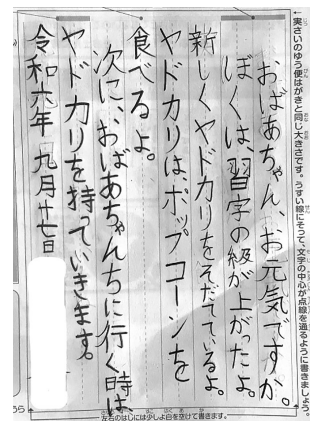 ←実さいのゆう便はがきと同じ大きさです。うすい線にそって、文字の中心が点線を通るように書きましょう。
おばあちゃん、お元気ですか。
ぼくは、習字の級が上がったよ。
新しくヤドカリをそだてているよ。
ヤドカリは、ポップコーンを
食べるよ。
次に、おばあちゃんちに行く時は、
ヤドカリを持っていきます。
令和六年 九月十七日
左右のはじには少しよ白を空けて書きます。